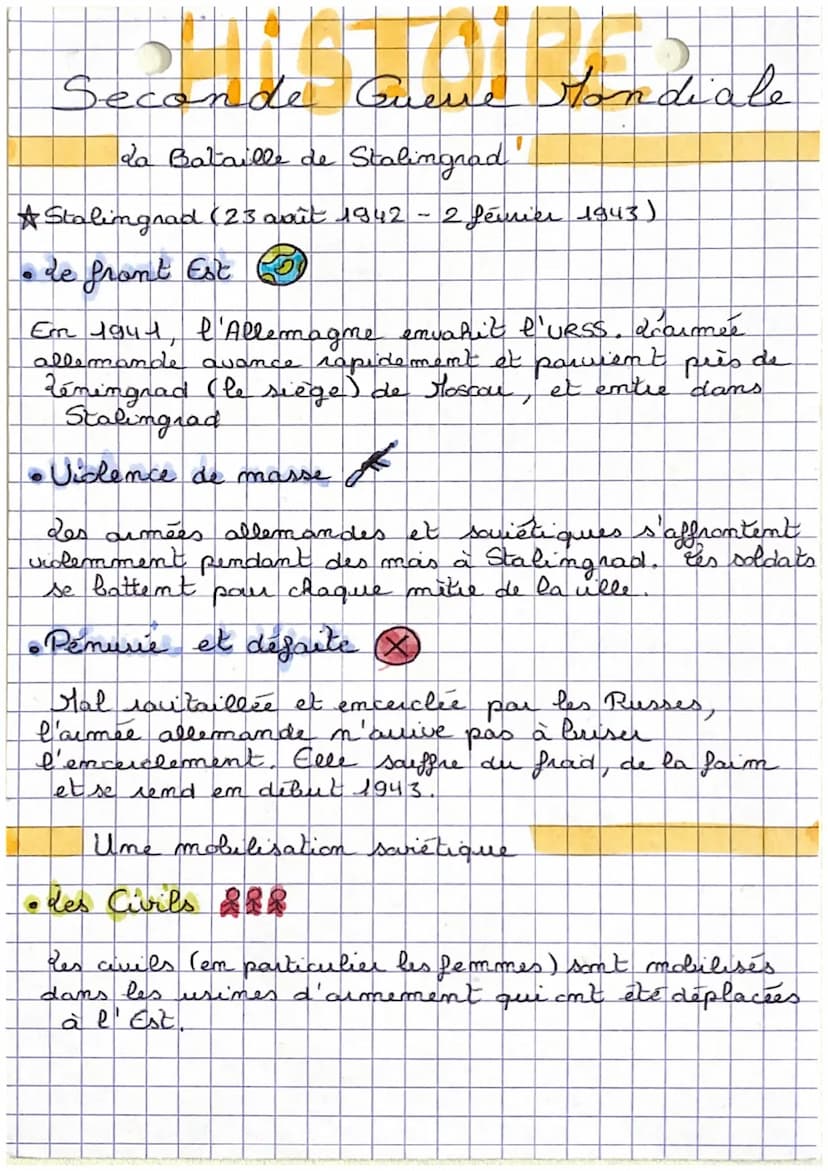 HiSTOiRE
Seconde Guerre Mondiale
La Bataille de Stalingrad
☆ Stalingrad (23 août 1942 - 2 février 1943)
• Le front Est
En 1941, l'Allemagne envahit l'URSS. L'armée
allemande avance rapidement et parvient près de
Léningrad (le siège) de Moscou, et entre dans
Stalingrad
• Violence de masse
Les armées allemandes et soviétiques s'affrontent
violemment pendant des mois à Stalingrad. Les soldats
se battent pour chaque mètre de la ville.
• Pénurie et défaite
Mal ravitaillée et encerclée par les Russes,
l'armée allemande n'arrive pas à briser
l'encerclement. Elle souffre du froid, de la faim
et se rend en début 1943.
Une mobilisation soviétique
• Les Civils
Les civils (en particulier les femmes) sont mobilisés
dans les usines d'armement qui ont été déplacées
à l'Est.